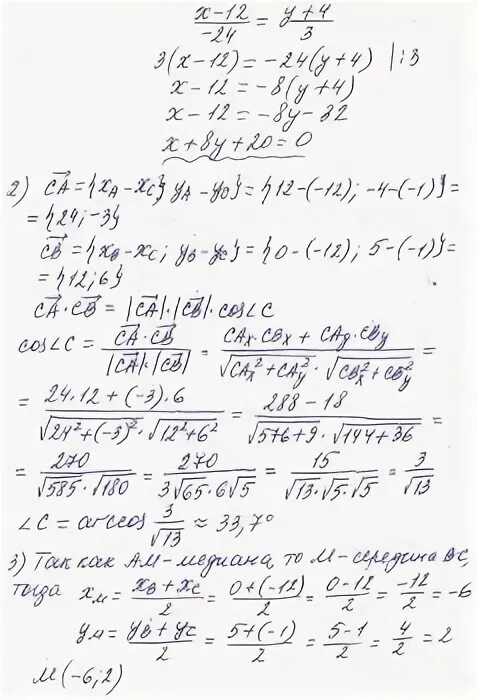 (x-12)/(-24) = (y+4)/3
3(x-12) = -24(y+4) |:3
x-12 = -8(y+4)
x-12 = -8y-32
x+8y+20=0
2) CA⃗ = {x_A - x_C; y_A - y_C} = {12-(-12); -4-(-1)} =
= {24; -3}
CB⃗ = {x_B - x_C; y_B - y_C} = {0-(-12); 5-(-1)} =
= {12; 6}
CA⃗·CB⃗ = |CA⃗|·|CB⃗|·cos∠C
cos∠C = (CA⃗·CB⃗)/(|CA⃗|·|CB⃗|) = (CAx·CBx + CAy·CBy)/(√(CAx²+CAy²)·√(CBx²+CBy²)) =
= (24·12+(-3)·6)/(√(24²+(-3)²)·√(12²+6²)) = (288-18)/(√(576+9)·√(144+36)) =
= 270/(√585·√180) = 270/(3√65·6√5) = 15/(√13·√5·√5) = 3/√13
∠C = arccos 3/√13 ≈ 33,7°
3) Так как AM-медиана, то M-середина BC,
тогда x_M = (x_B+x_C)/2 = (0+(-12))/2 = (0-12)/2 = -12/2 = -6
y_M = (y_B+y_C)/2 = (5+(-1))/2 = (5-1)/2 = 4/2 = 2
M(-6; 2)